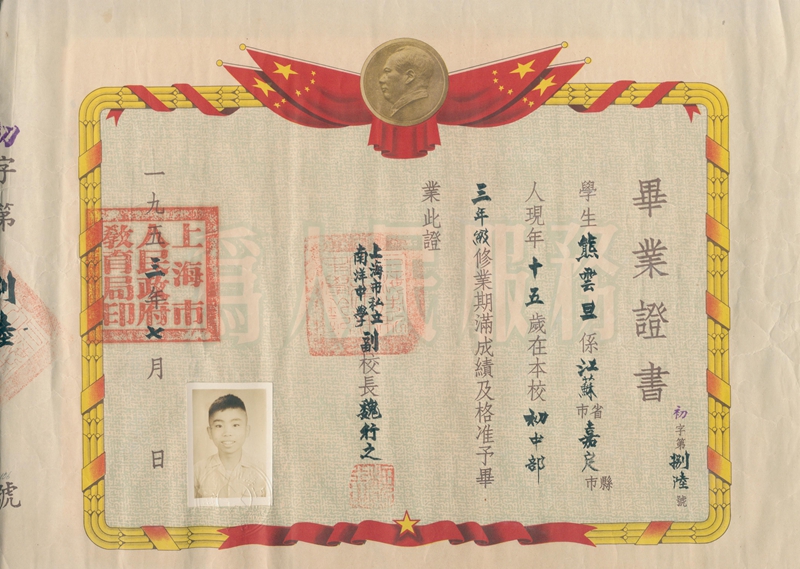 畢業證書
初字第捌陸號
學生熊雲旦係江蘇省市嘉定縣市
人現年十五歲在本校初中部
三年級修業期滿成績及格准予畢
業此證
上海市私立
南洋中學
副校長魏行之
一九五三年七月 日
為人民服務
上海市
人民政府
教育局印
初字第捌陸號